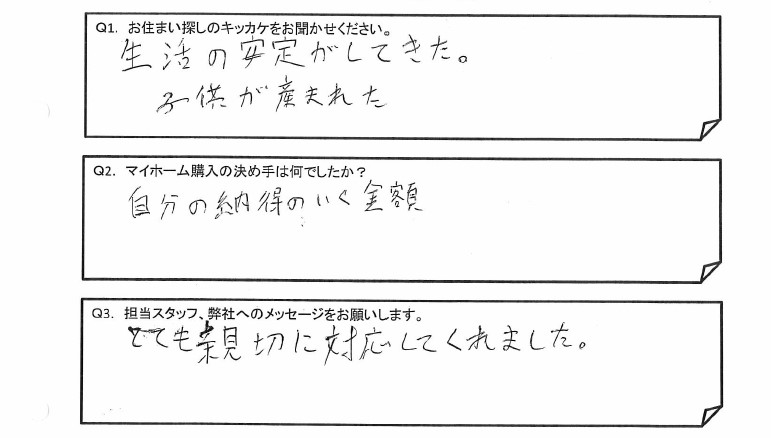 Q1. お住まい探しのキッカケをお聞かせください。
生活の安定がしてきた。
子供が産まれた
Q2. マイホーム購入の決め手は何でしたか？
自分の納得のいく金額
Q3. 担当スタッフ、弊社へのメッセージをお願いします。
とても親切に対応してくれました。